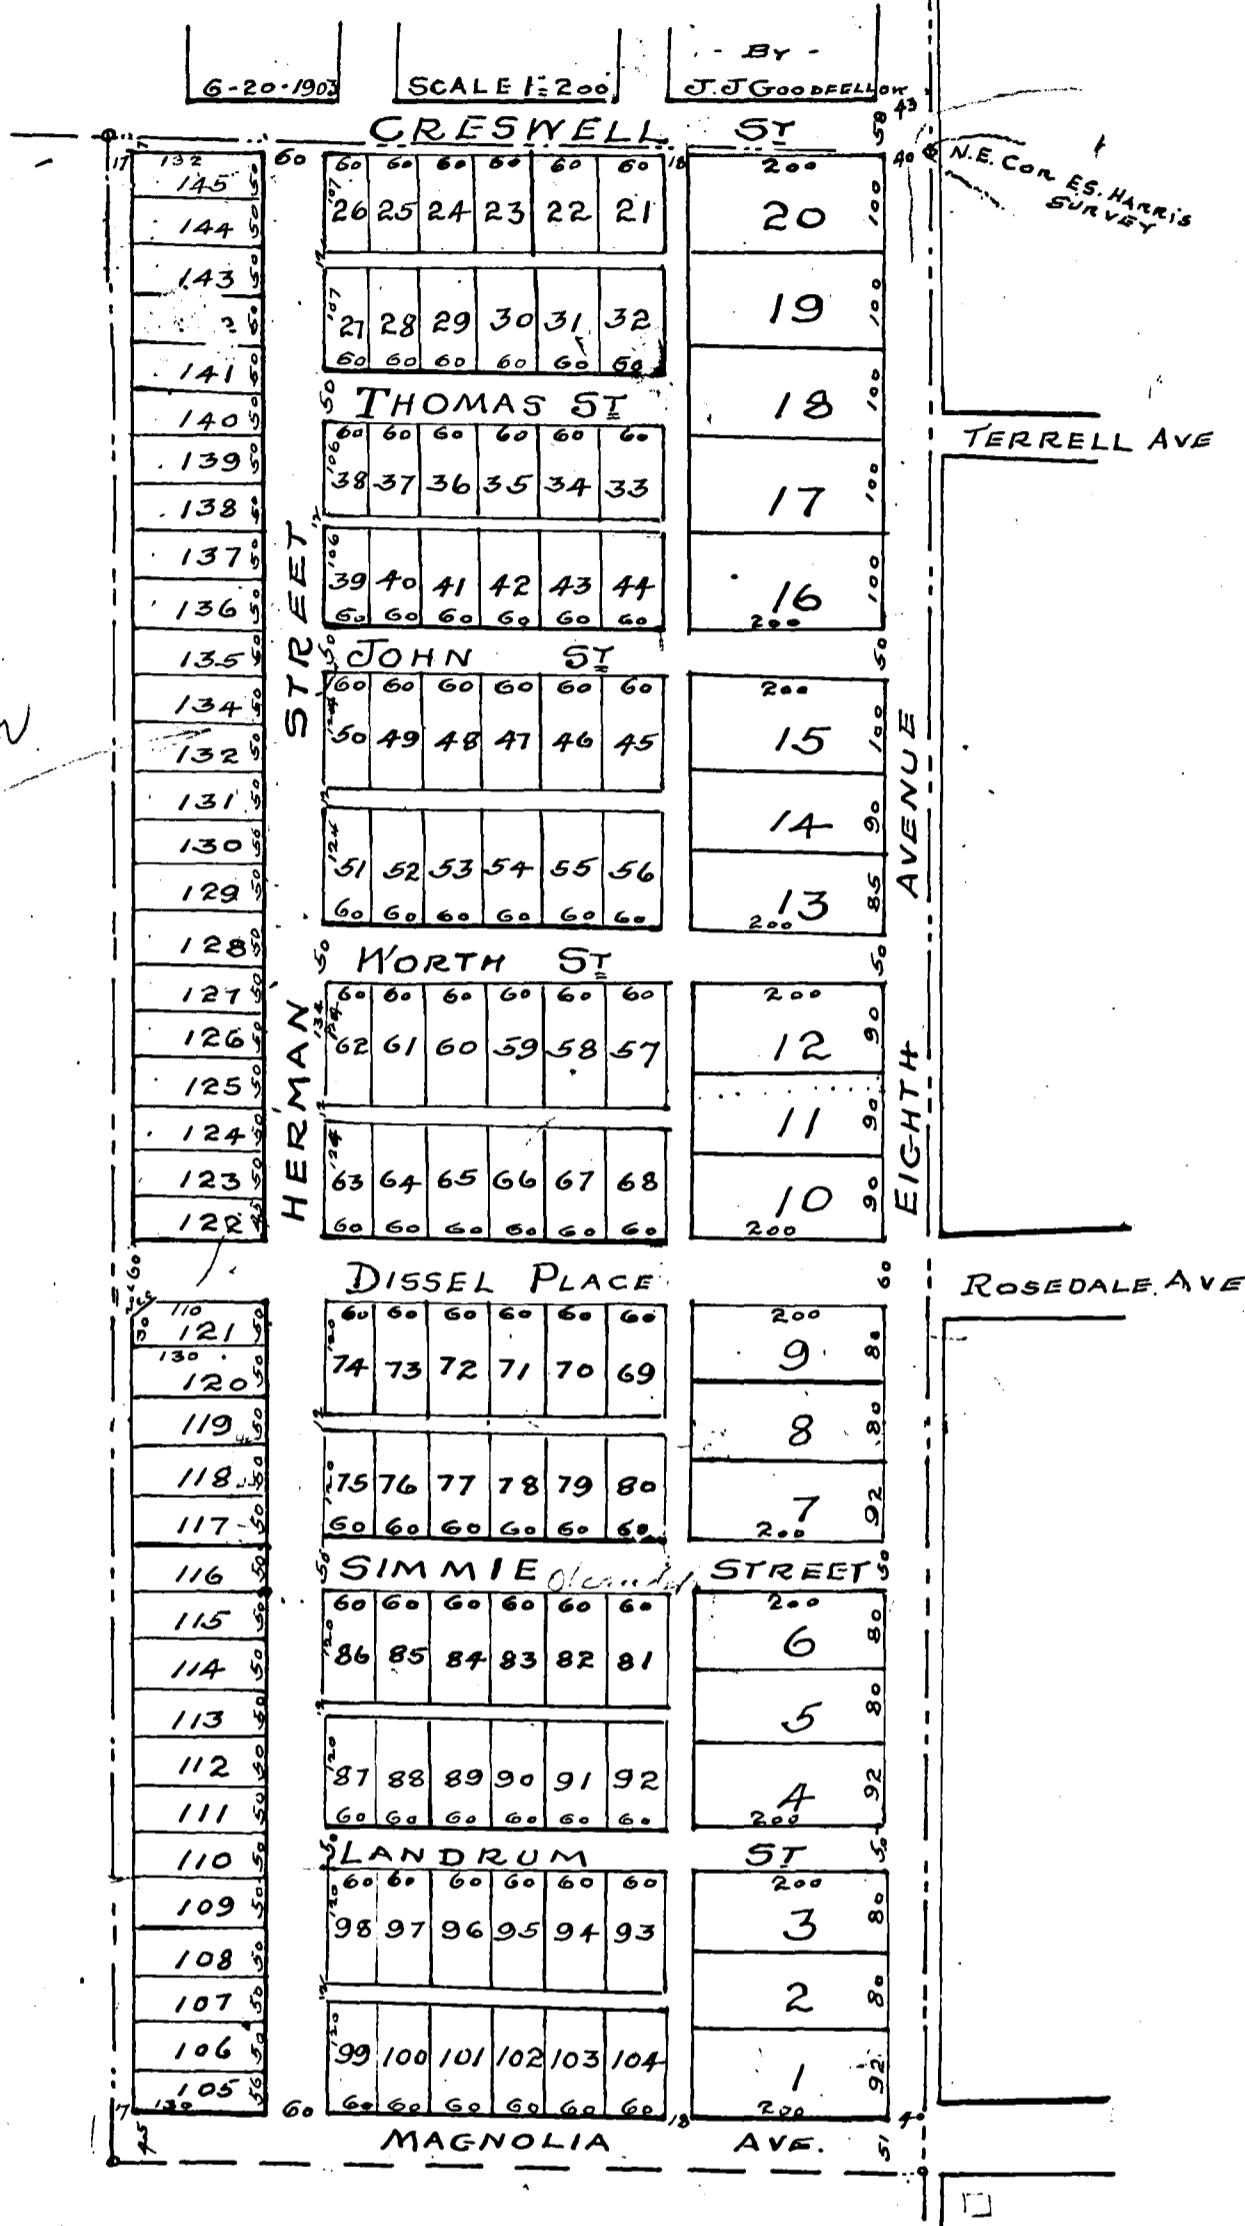 6-20-1903
SCALE 1"=200'
- BY -
J. J GOODFELLOW
CRESWELL ST
N.E. COR E.S. HARRIS
SURVEY
43
58
40
17
12
7
132
60
18
145 50
144 50
143 50
? 50
141 50
140 50
139 50
138 50
137 50
136 50
135 50
134 50
132 50
131 50
130 50
129 50
128 50
127 50
126 50
125 50
124 50
123 50
122 45
60
110
20
30
121 50
130
120 50
119 50
118 50
117 50
116 50
115 50
114 50
113 50
112 50
111 50
110 50
109 50
108 50
107 50
106 50
105 50
130
7
45
HERMAN STREET
60 60 60 60 60 60
107
26 25 24 23 22 21
12
107
27 28 29 30 31 32
60 60 60 60 60 60
50
THOMAS ST
60 60 60 60 60 60
106
38 37 36 35 34 33
12
106
39 40 41 42 43 44
60 60 60 60 60 60
50
JOHN ST
60 60 60 60 60 60
124
50 49 48 47 46 45
12
124
51 52 53 54 55 56
60 60 60 60 60 60
50
WORTH ST
60 60 60 60 60 60
134
124
62 61 60 59 58 57
12
124
63 64 65 66 67 68
60 60 60 60 60 60
DISSEL PLACE
60 60 60 60 60 60
120
74 73 72 71 70 69
12
120
75 76 77 78 79 80
60 60 60 60 60 60
50
SIMMIE STREET
60 60 60 60 60 60
120
86 85 84 83 82 81
12
120
87 88 89 90 91 92
60 60 60 60 60 60
50
LANDRUM ST
60 60 60 60 60 60
120
98 97 96 95 94 93
12
120
99 100 101 102 103 104
60 60 60 60 60 60
60
18
MAGNOLIA AVE.
200
20 100
19 100
18 100
17 100
16 100
200
50
200
15 100
14 90
13 85
200
50
200
12 90
11 90
10 90
200
60
200
9 80
8 80
7 92
200
50
200
6 80
5 80
4 92
200
50
200
3 80
2 80
1 92
200
40
51
EIGHTH AVENUE
TERRELL AVE
ROSEDALE AVE